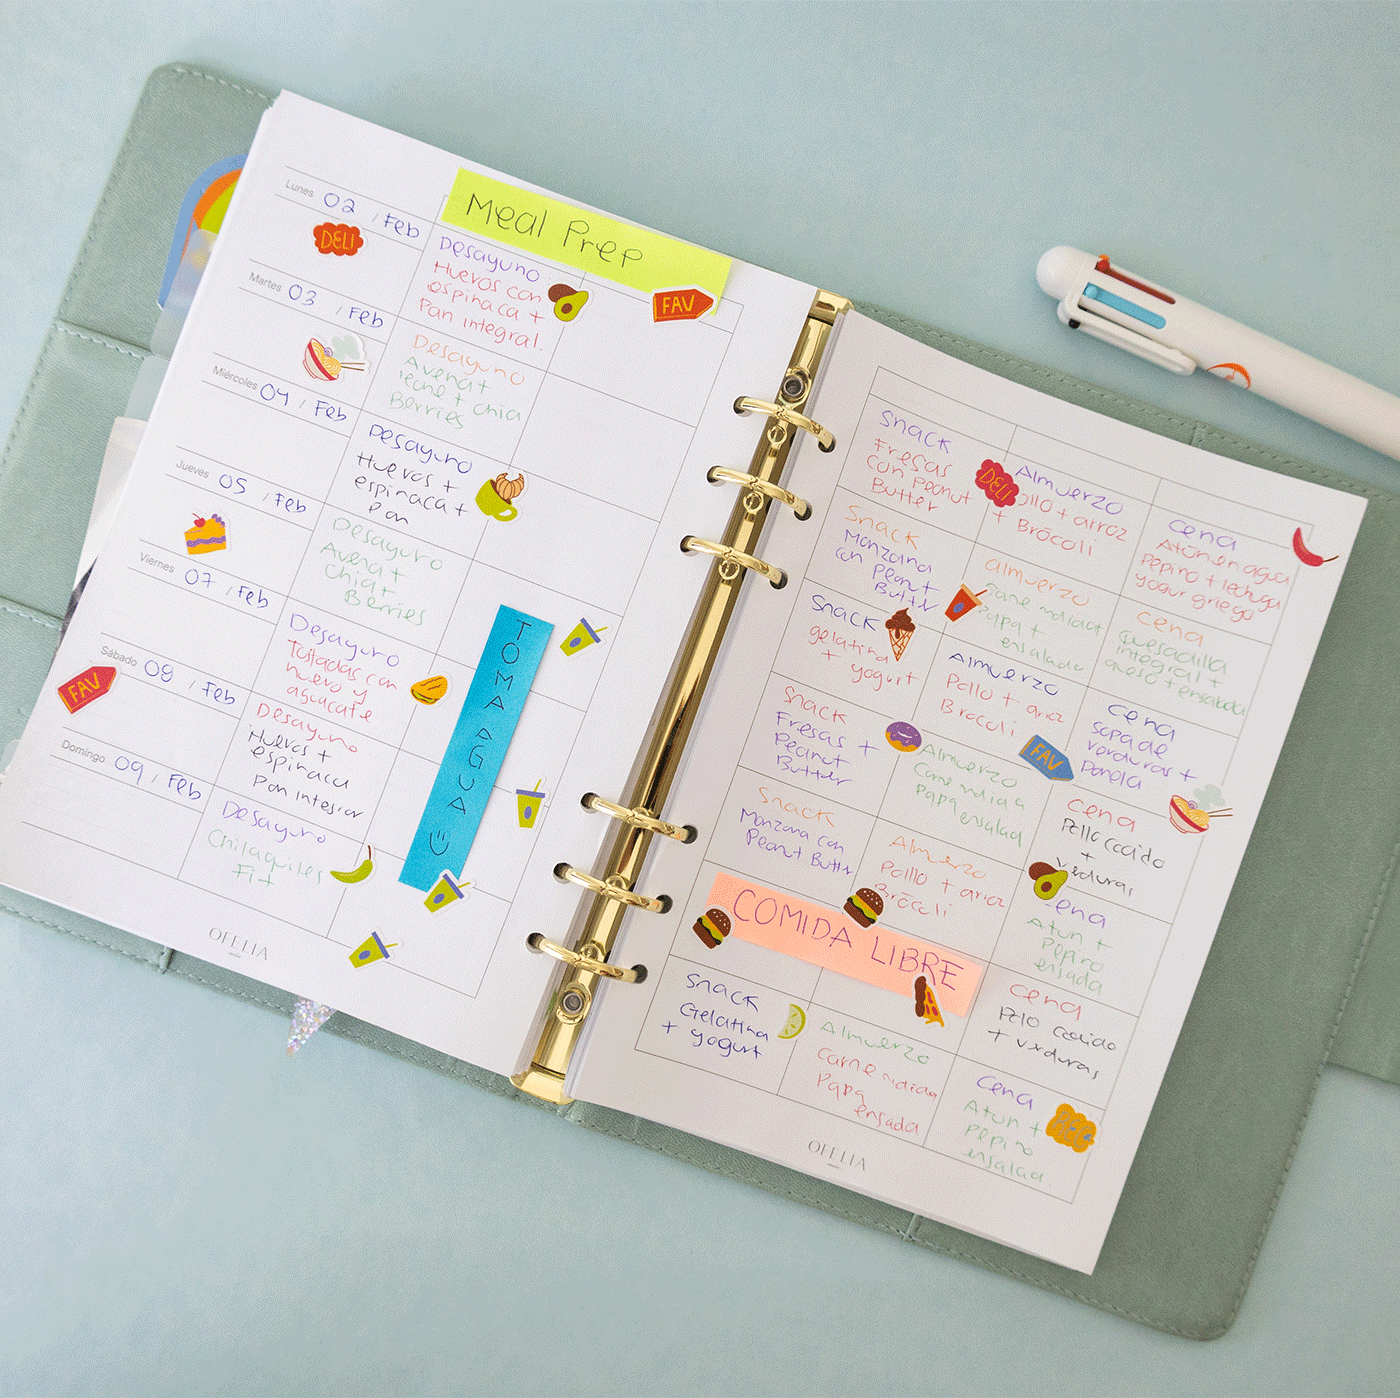 Meal Prep
Lunes 02 / Feb
DELI
Desayuno
Huevos con
espinaca +
Pan integral.
FAV
Martes 03 / Feb
Desayuno
Avena +
leche + chia
Berries
Miércoles 04 / Feb
Desayuno
Huevos +
espinaca +
Pan
Jueves 05 / Feb
Desayuno
Avena +
Chia +
Berries
Viernes 07 / Feb
Desayuno
Tostadas con
huevo y
aguacate
Sábado 08 / Feb
FAV
Desayuno
Huevos +
espinaca
Pan integral
Domingo 09 / Feb
Desayuno
Chilaquiles
Fit
TOMA AGUA
OFELIA
Snack
Fresas
con Peanut
Butter
DELI
Almuerzo
Pollo + arroz
+ Brócoli
Cena
Atún en agua
Pepino + lechuga
yogur griego
Snack
Manzana
con Peanut
Butter
almuerzo
Carne molida
Papa +
ensalada
Cena
Quesadilla
integral +
queso + ensalada
Snack
gelatina
+ yogurt
Almuerzo
Pollo + arroz
Brócoli
Cena
Sopa de
verduras +
Panela
Snack
Fresas +
Peanut
Butter
Almuerzo
Carne molida
Papa
ensalada
FAV
Cena
Pollo cocido
+
verduras
Snack
Manzana con
Peanut Butter
Almuerzo
Pollo + arroz
Brócoli
Cena
Atún +
Pepino
ensalada
COMIDA LIBRE
Cena
Pollo cocido
+ verduras
Snack
Gelatina
+ yogurt
Almuerzo
Carne molida
Papa
ensalada
Cena
Atún +
Pepino
ensalada
OFELIA